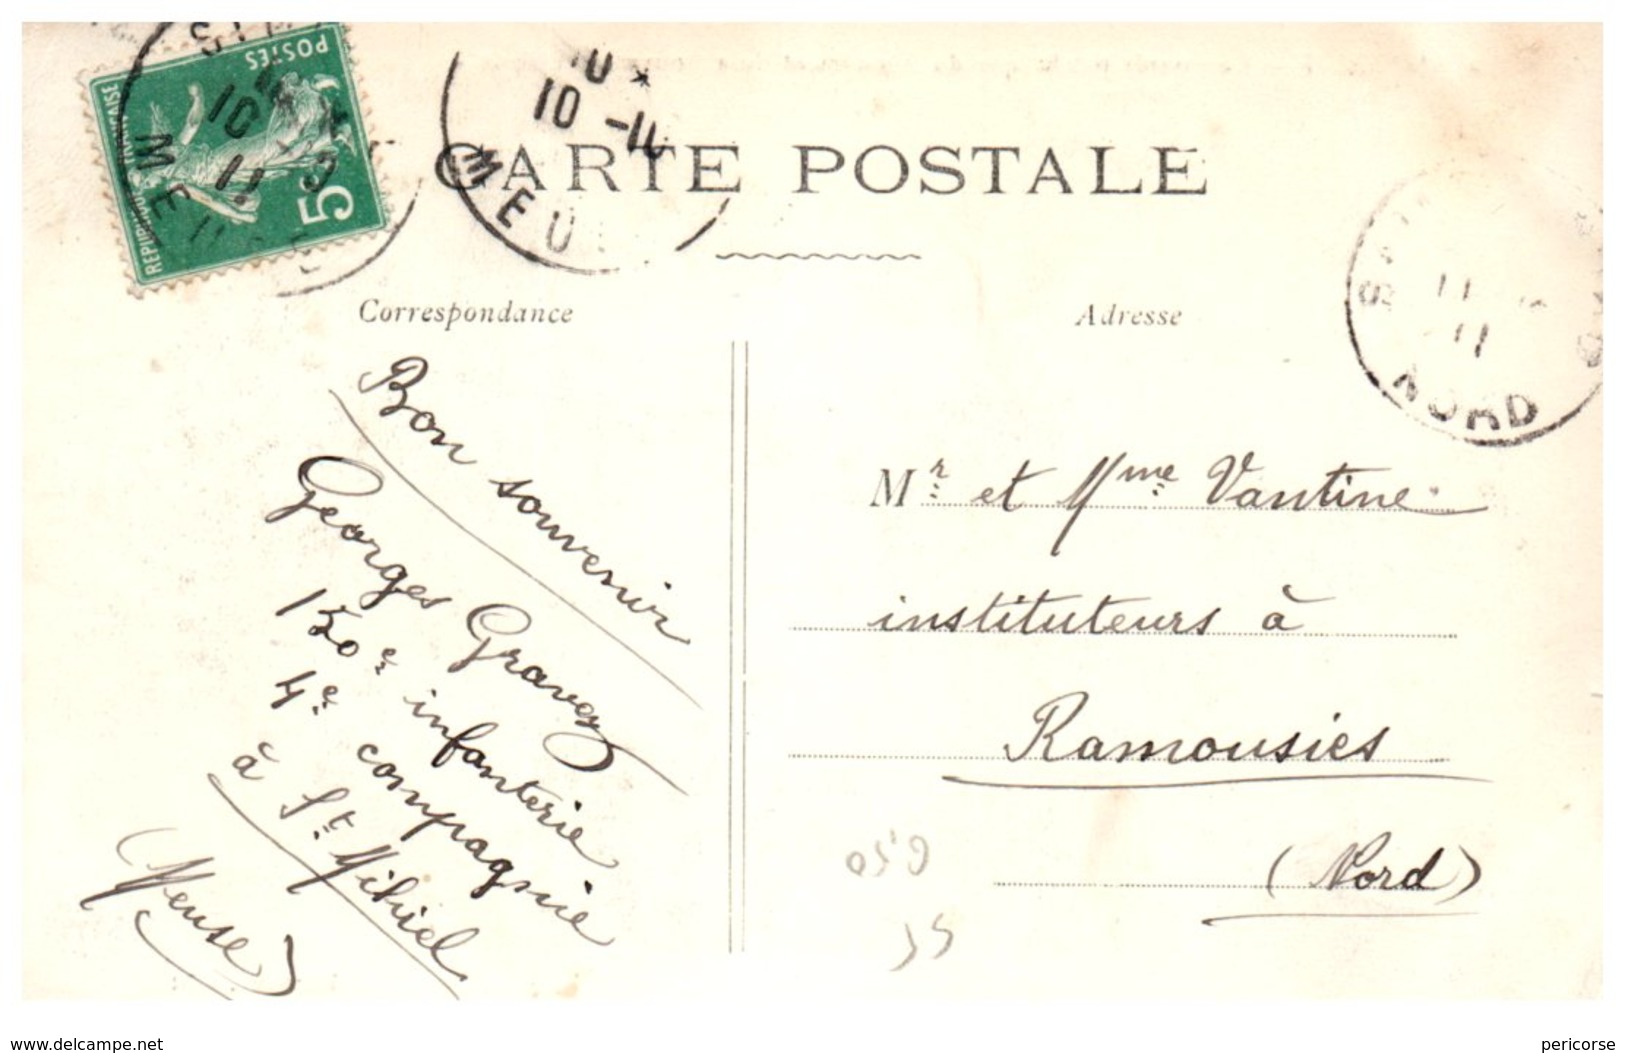 POSTES
5
10
11
MEU
10 -11
MEU
CARTE POSTALE
Correspondance
Adresse
11
11
NORD
Bon souvenir
Georges Gravez
150e infanterie
4e compagnie
à St Mihiel
(Meuse)
Mr et Mme Vantine
instituteurs à
Ramousies
(Nord)
www.delcampe.net
pericorse